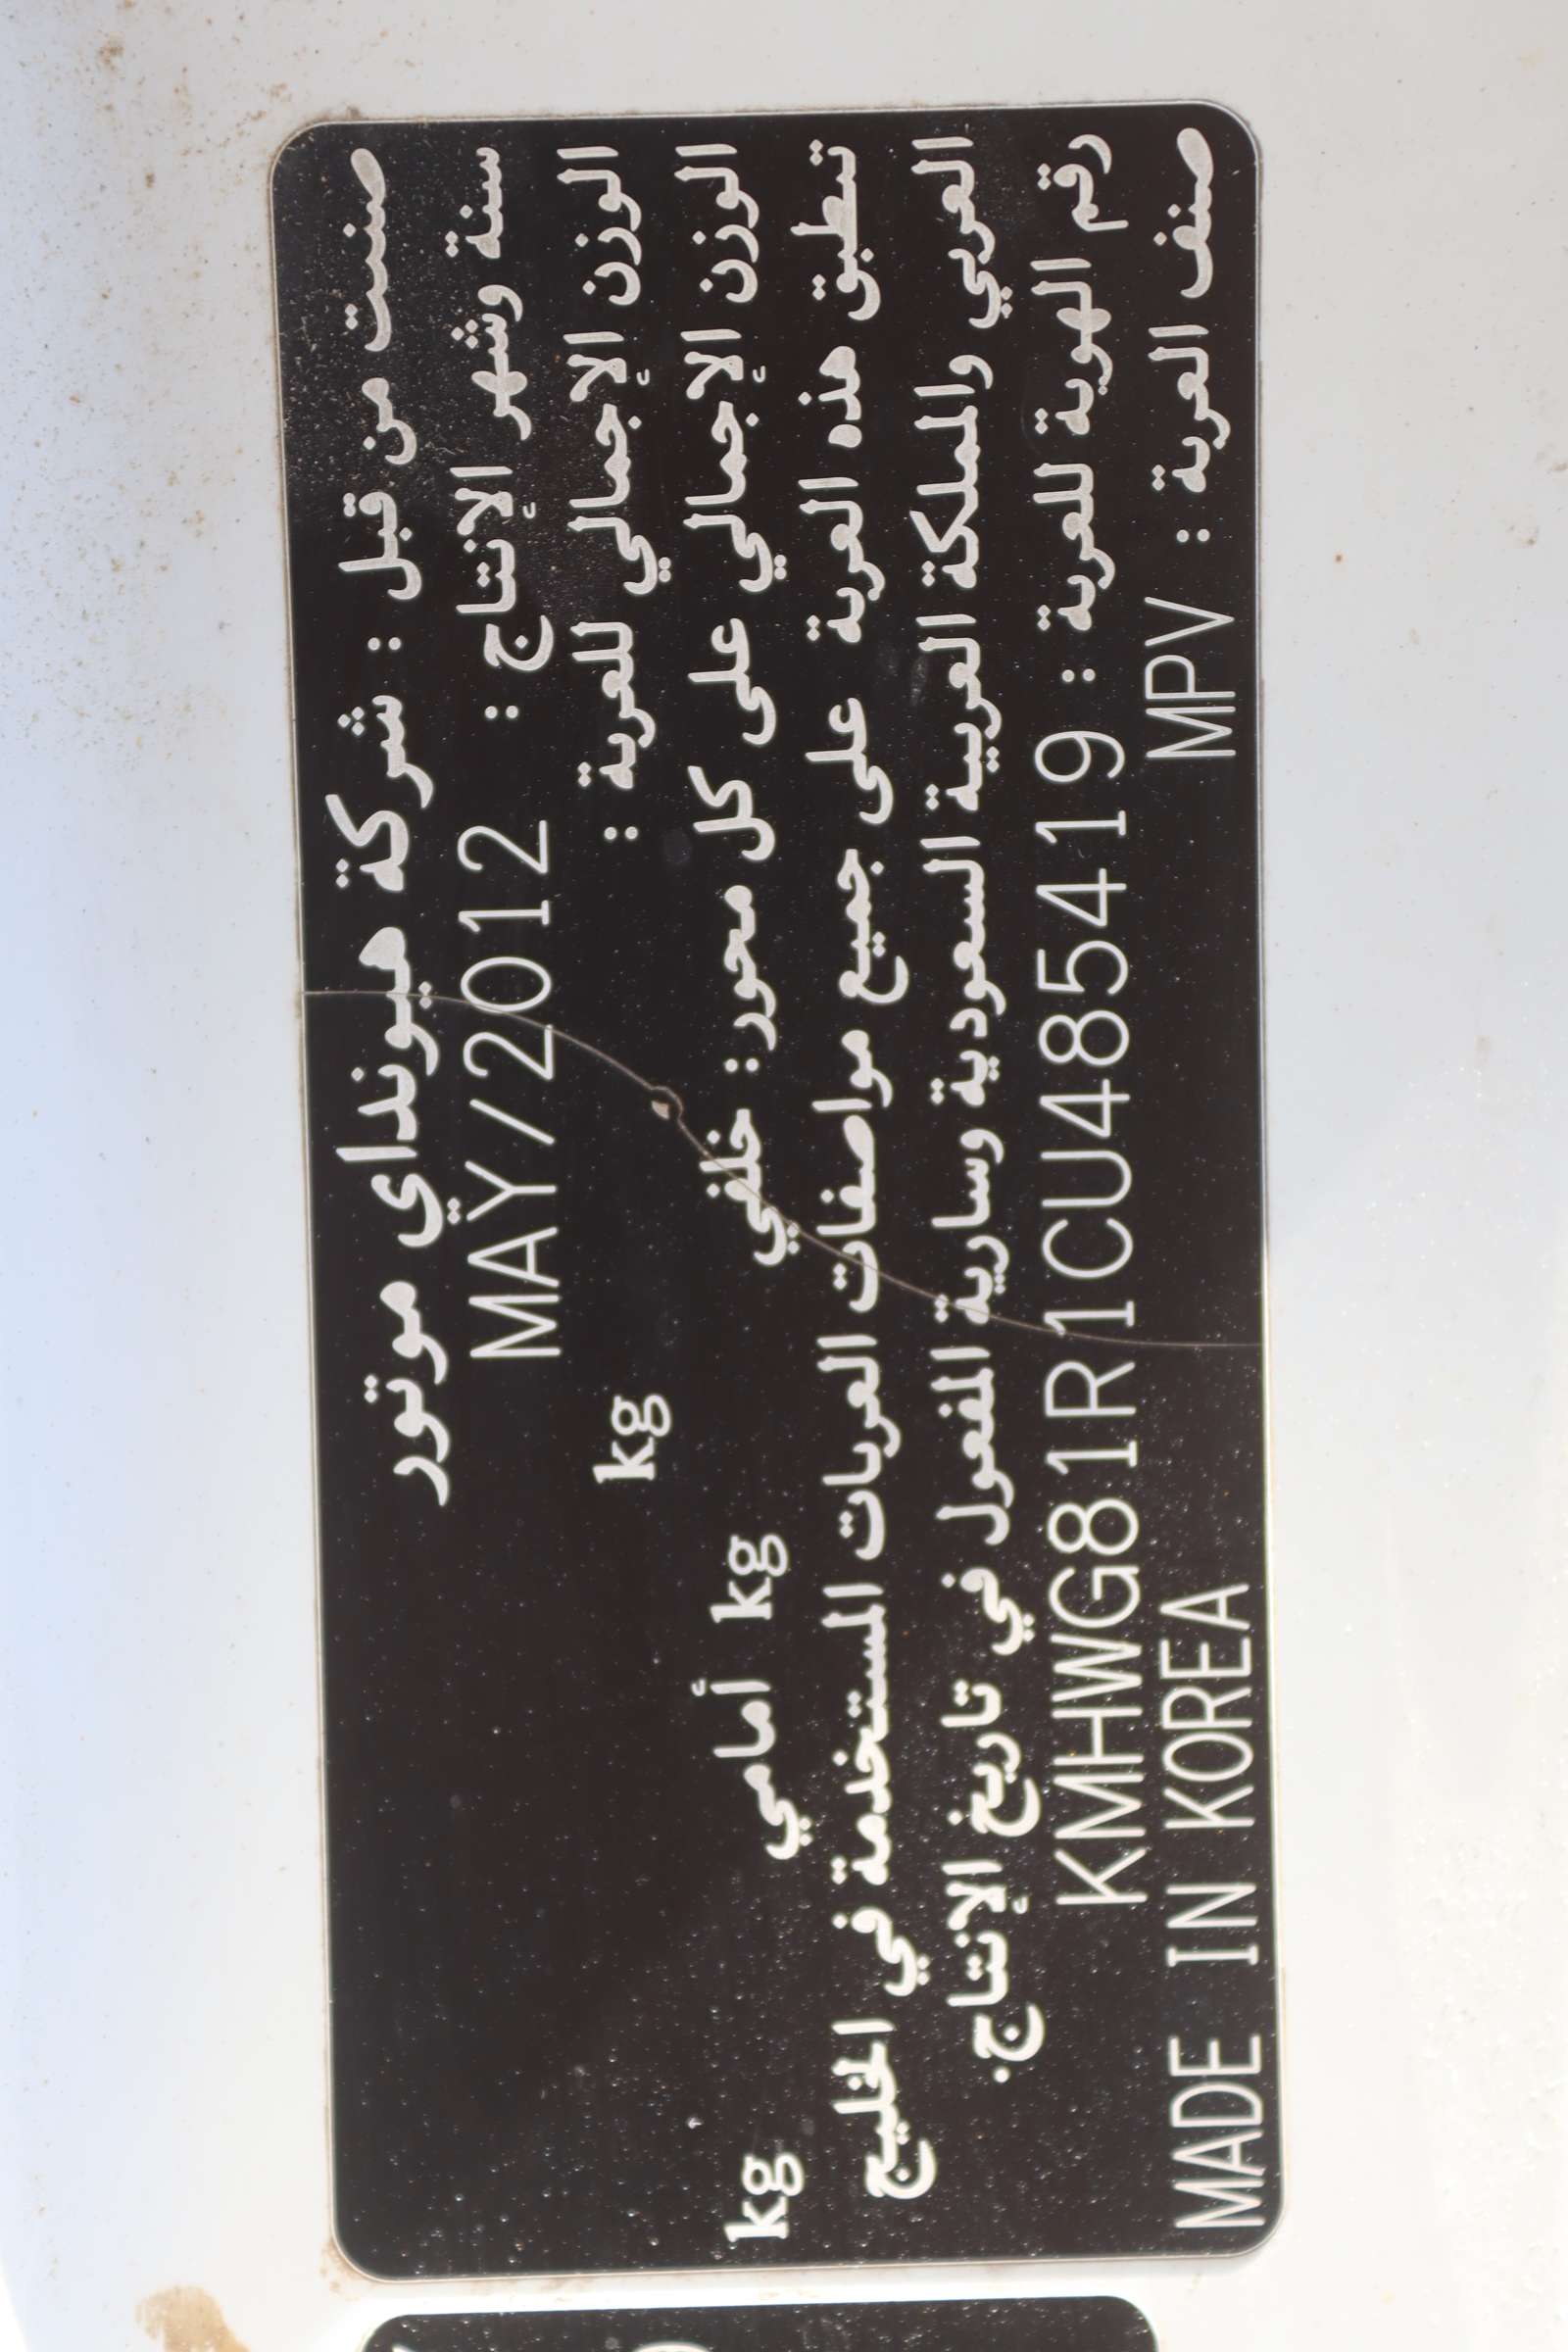 صنعت من قبل : شركة هيونداي موتور
سنة وشهر الإنتاج : MAY/2012
الوزن الإجمالي للعربة : kg
الوزن الإجمالي على كل محور: خلفي kg أمامي kg
تنطبق هذه العربة على جميع مواصفات العربات المستخدمة في الخليج
العربي والمملكة العربية السعودية وسارية المفعول في تاريخ الإنتاج.
رقم الهوية للعربة : KMHWG81R1CU485419
صنف العربة : MPV MADE IN KOREA